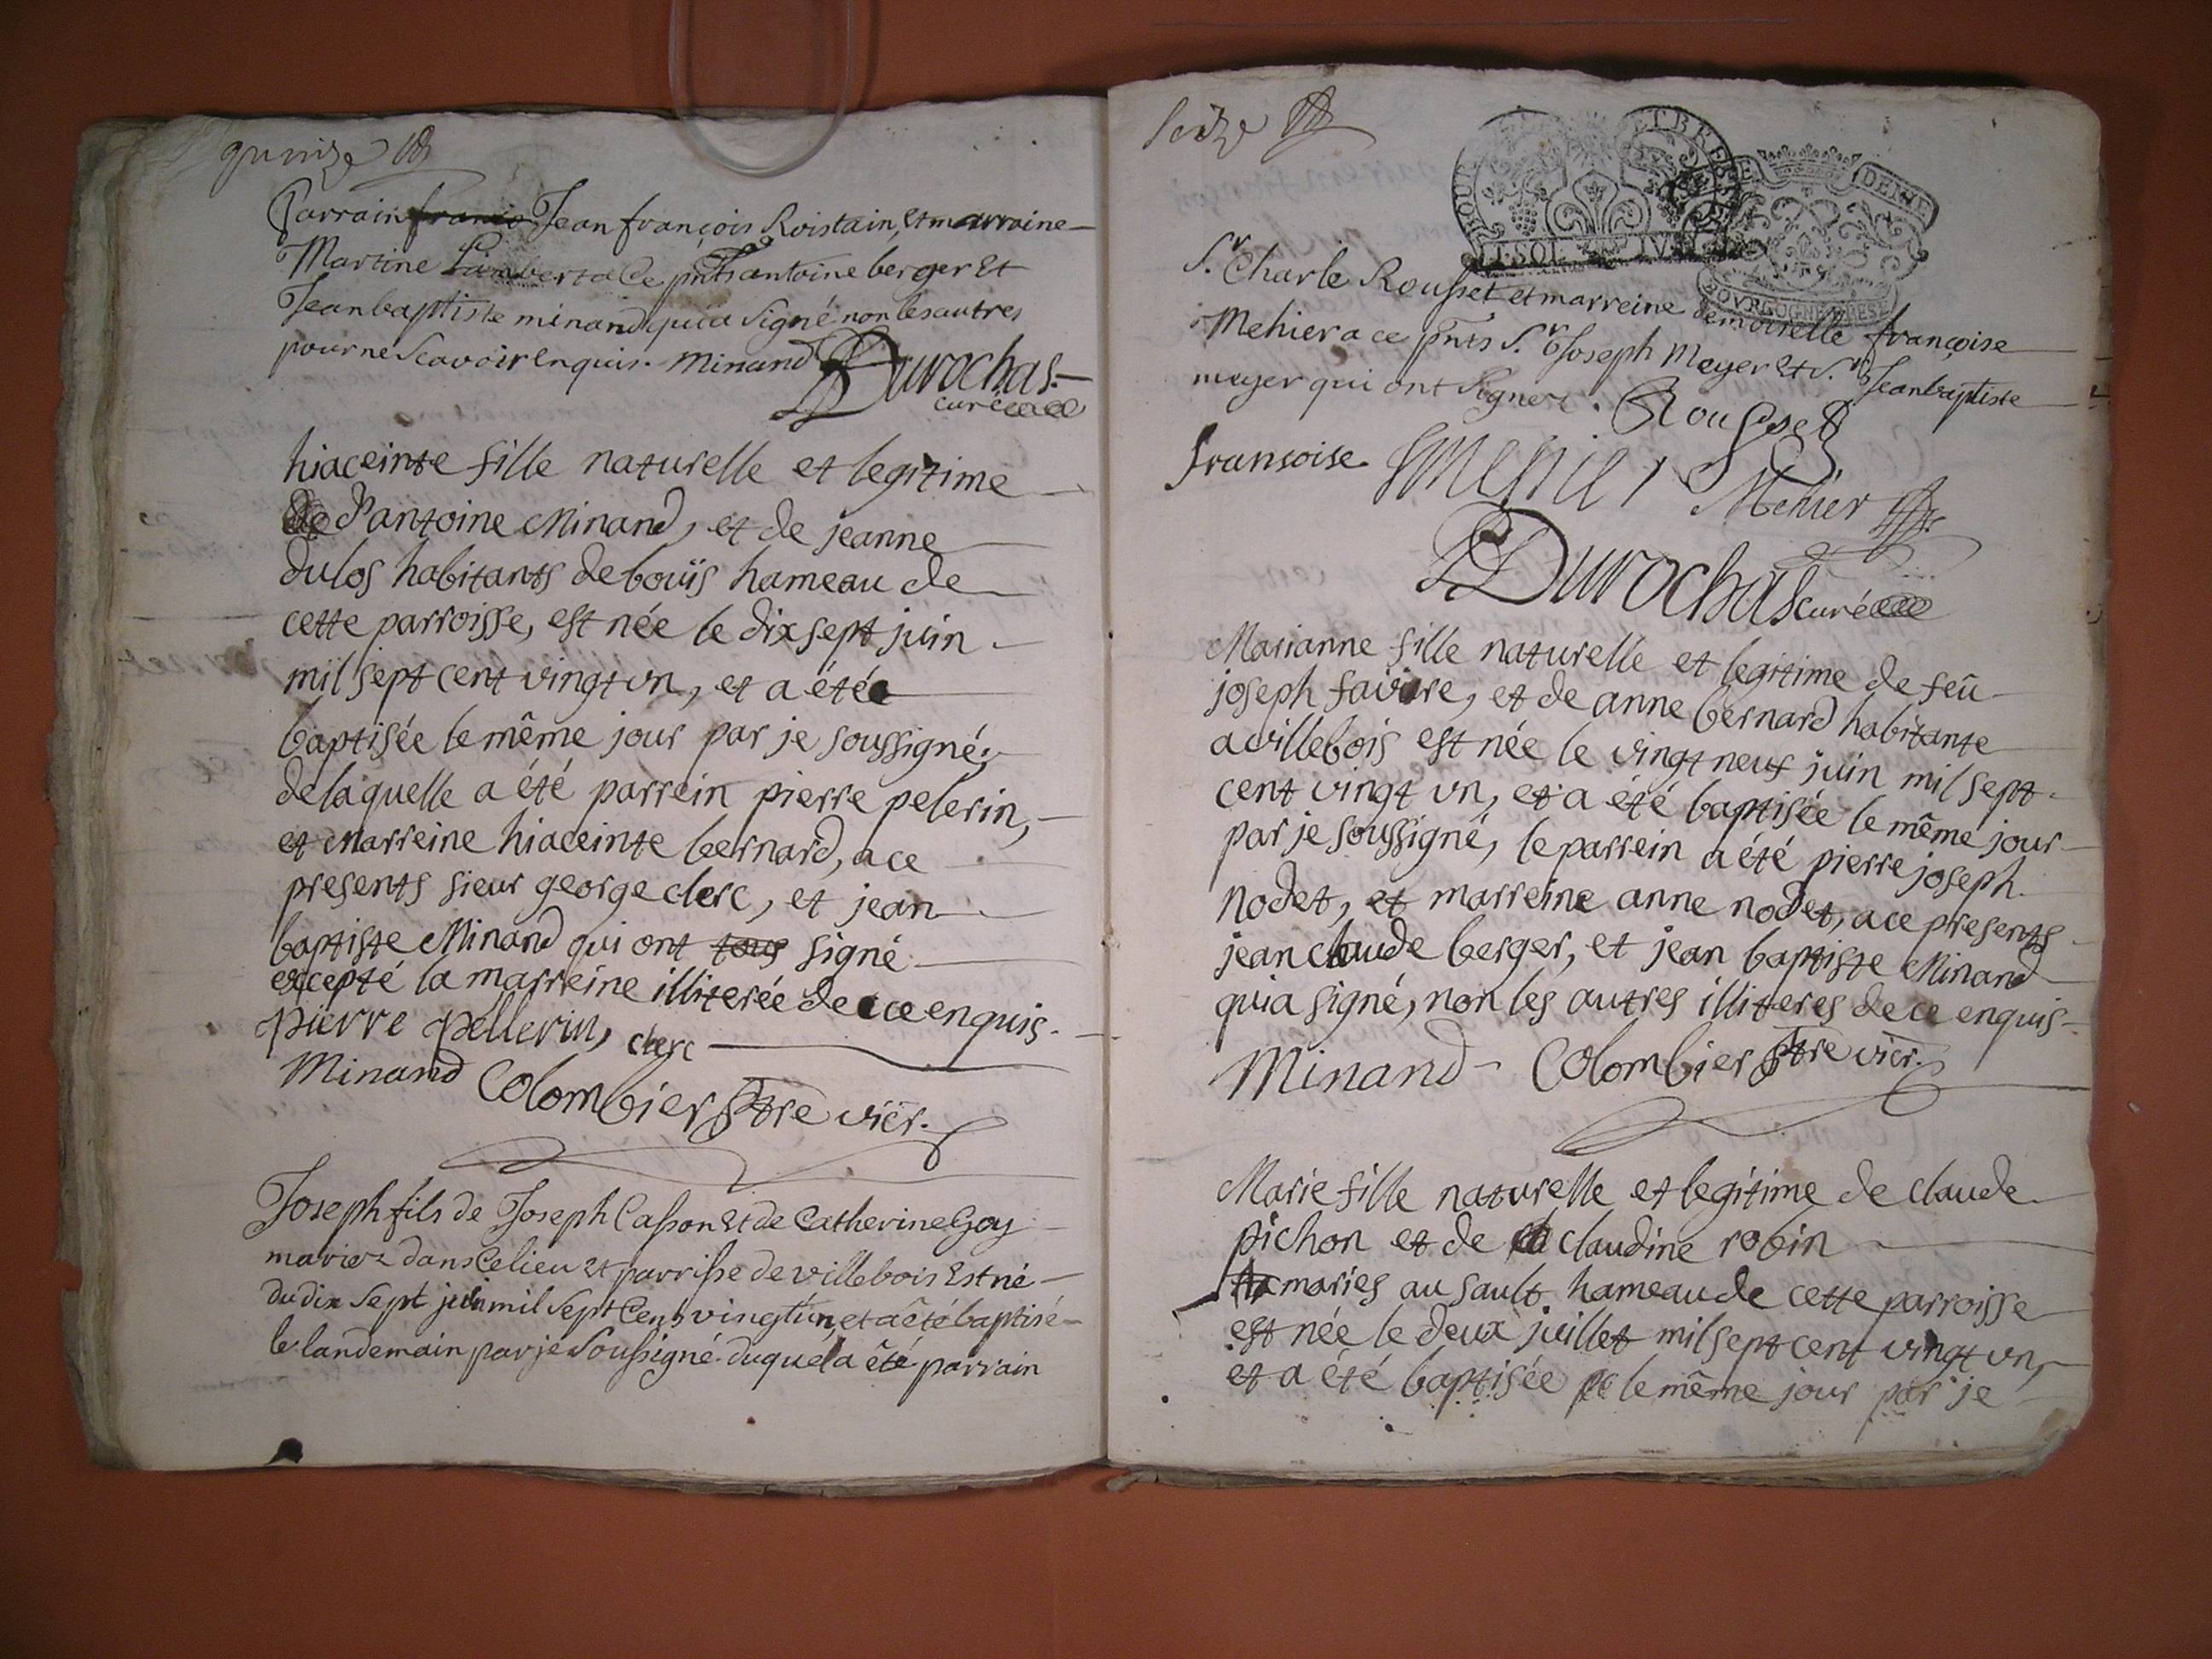 quinze
Parrain francois Jean françois Roistain, et marraine
Martine Limberta Ce pnts antoine berger et
Jean baptiste minand qui a Signé non les autres
pour ne Scavoir enquis. Minand
Durochas
curé
hiaceinte fille naturelle et legitime
de d'antoine Minand, et de jeanne
dulos habitants de bouïs hameau de
cette parroisse, est née le dix sept juin
mil sept cent vingt un, et a étée
baptisée le même jour par je soussigné,
de laquelle a été parrein pierre pelerin,
et Marreine hiaceinte bernard, a ce
presents sieur george clerc, et jean
baptiste Minand qui ont tous signé
excepté la marreine illiterée de ce enquis.
pierre pellerin, clerc
Minand Colombier ptre vicr.
Joseph fils de Joseph Casson et de Catherine Goy
mariez dans Ce lieu et parrisse de villebois Est né
du dix Sept juin mil Sept Cent vingt un, et a êté baptisé
le landemain par je Soussigné duquel a êté parrain
Seize
BOURGOGNE ET BRESSE
BOVRGOGNE BRESE
S.r Charle Rousset et marreine demoiselle françoise
Mehier a ce pnts S.r Joseph Meyer et S.r Jean baptiste
meyer qui ont Signer. Rousset
fransoise Mehier
Durochas curé
Marianne fille naturelle et legitime de feû
joseph favure, et de anne bernard habitante
a villebois est née le vingt neuf juin mil sept
cent vingt un, et a été baptisée le même jour
par je soussigné, le parrein a été pierre joseph
nodet, et marreine anne nodet, a ce presents
jean claude berger, et jean baptiste Minand
qui a signé, non les autres illiteres de ce enquis
Minand Colombier ptre vicr.
Marie fille naturelle et legitime de claude
pichon et de claudine robin
maries au sault hameau de cette parroisse
est née le deux juillet mil sept cent vingt un,
et a été baptisée le même jour par je